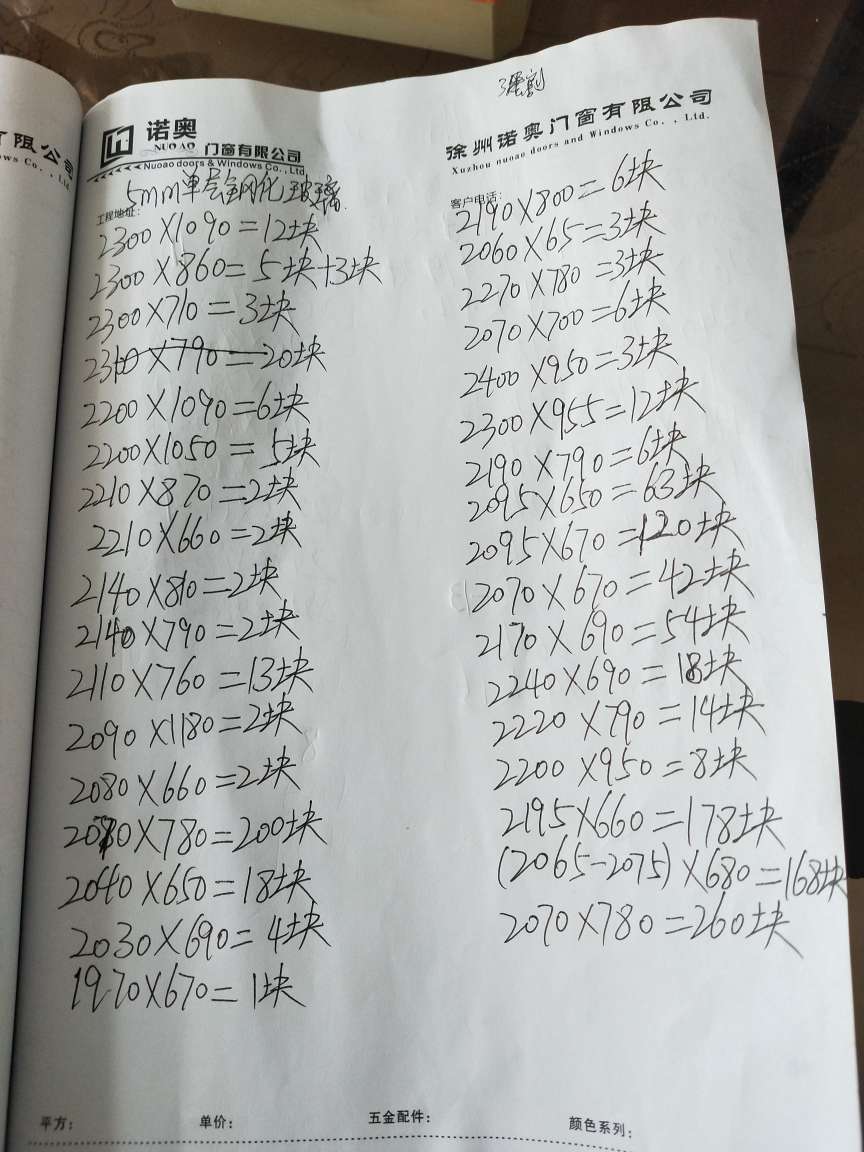 有限公司
ws Co., Ltd.
诺奥
NUOAO 门窗有限公司
Nuoao doors & Windows Co., Ltd
徐州诺奥门窗有限公司
Xuzhou nuoao doors and Windows Co. , Ltd.
5mm单层钢化玻璃
工程地址:
2300×1090=12块
2300×860=5块+3块
2300×710=3块
2310×790=20块
2200×1090=6块
2200×1050=5块
2210×870=2块
2210×660=2块
2140×810=2块
2140×790=2块
2110×760=13块
2090×1180=2块
2080×660=2块
2080×780=200块
2040×650=18块
2030×690=4块
1970×670=1块
客户电话:
2190×800=6块
2060×65=3块
2270×780=3块
2070×700=6块
2400×950=3块
2300×955=12块
2190×790=6块
2095×650=63块
2095×670=120块
2070×670=42块
2170×690=54块
2240×690=18块
2220×790=14块
2200×950=8块
2195×660=178块
(2065-2075)×680=168块
2070×780=260块
平方:
单价:
五金配件:
颜色系列: